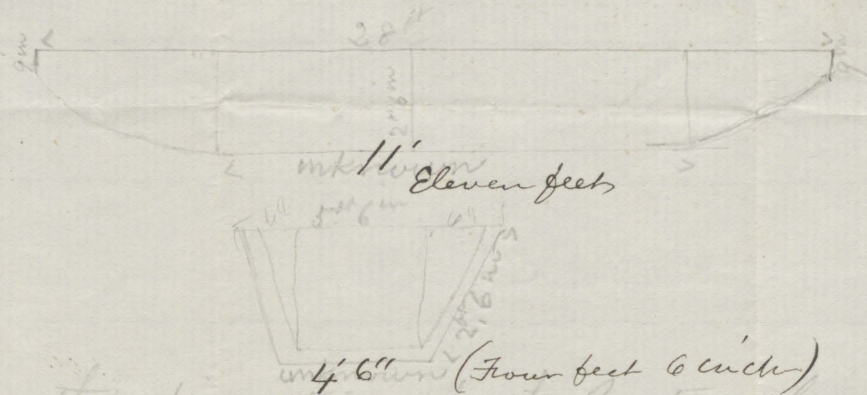 28 ft
9 in 9 in
2 ft 6 in
unknown
11' Eleven feet
6" 6 in 6"
2 ft 6 in
unknown
4' 6" (Four feet 6 inch)